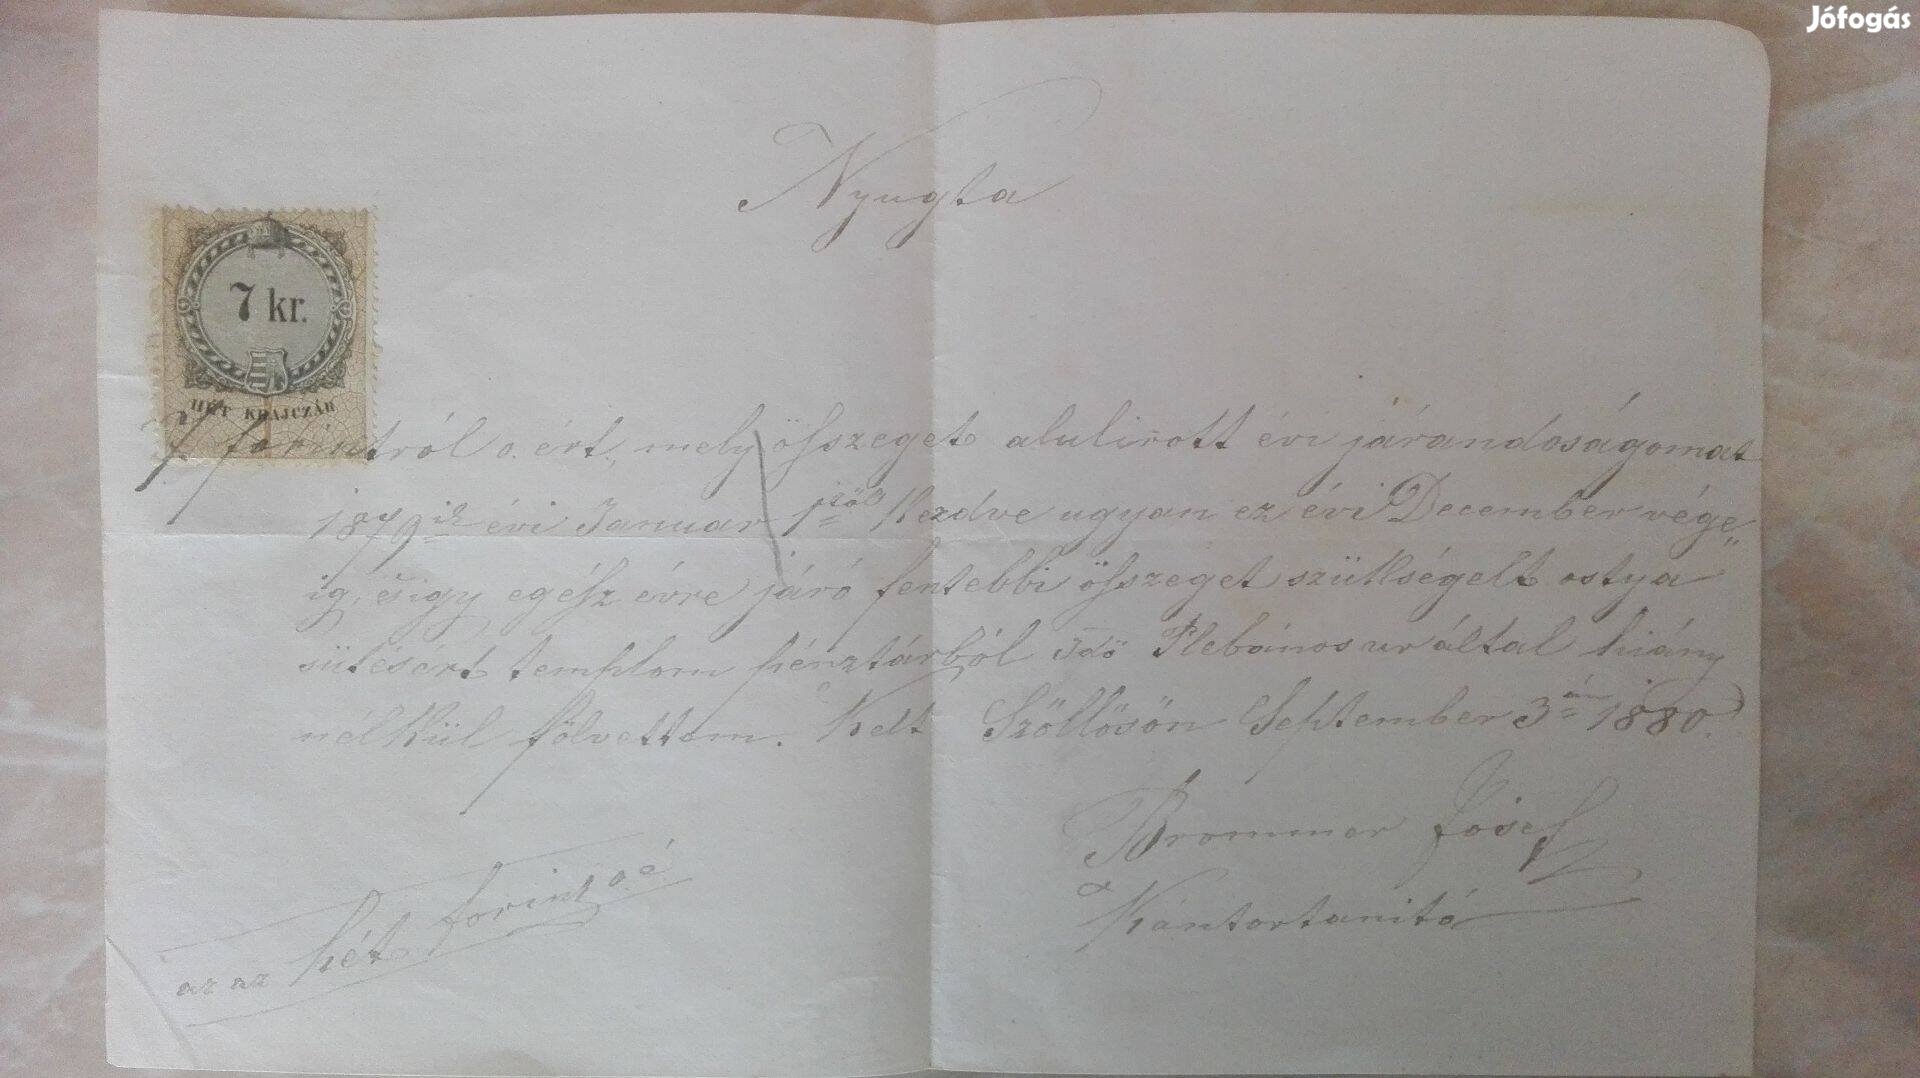 Jófogás
Nyugta
7 kr.
HÉT KRAJCZÁR
7 forintról o. ért., mely összeget alulirott évi járandoságomat
1879ik évi Januar 1ső től kezdve ugyan ez évi December vége„
ig, és igy egész évre járó fentebbi összeget szükségelt ostya
sütésért templom pénztárból Plebános ur által hiány
nélkül fölvettem. Kelt Szöllösön September 3án 1880.
Brommer Josef
Kántortanitó
az az hét forint o. é.